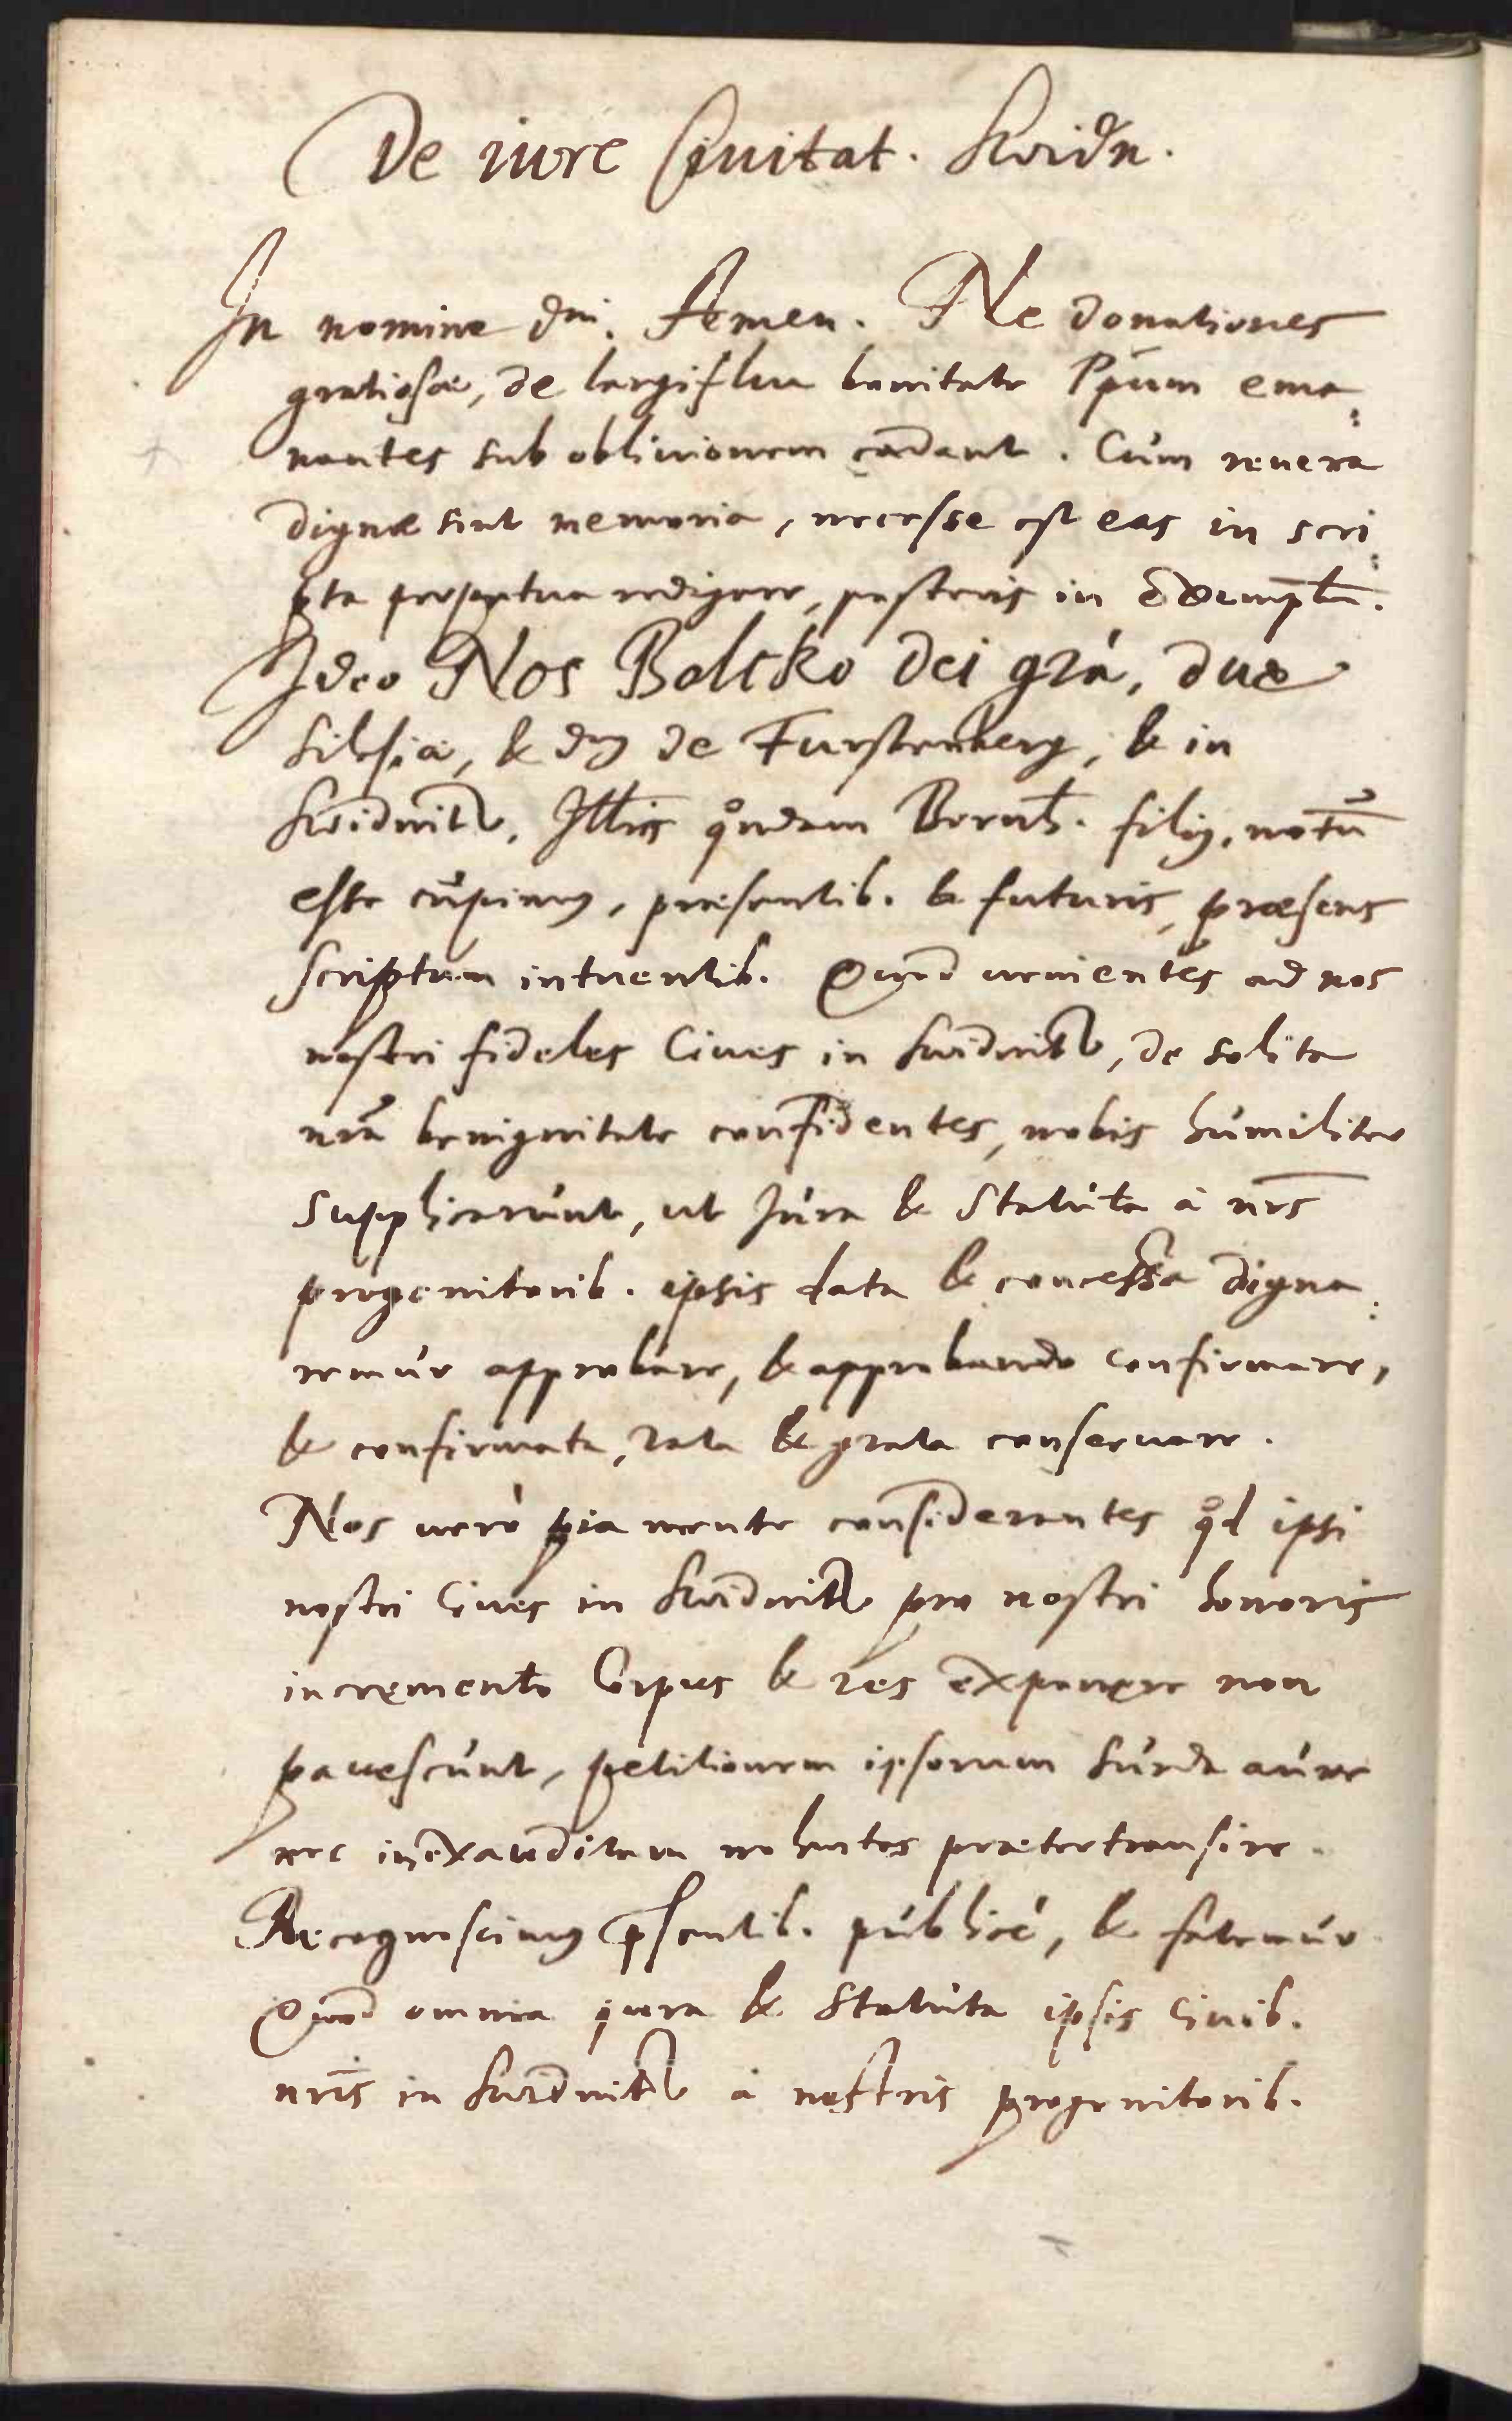 De iure Ciuitat. Swidn.
In nomine dni. Amen. Ne donationes
gratiosæ, de largiflua bonitate Ppum ema:
nantes sub obliuionem cadant. Cùm reuera
dignæ sint memoria, necesse est eas in scri:
pta perpetua redigere, posteris in exemplu.
Ideo Nos Bolcko dei gra, dux
Silesiæ, & dns de Furstenberg, & in
Swidnitz, Illris qondam Bernh. filij, notũ
esse cupimus, præsentib. & futuris, præsens
scriptum intuentib. Quod uenientes ad nos
nostri fideles Ciues in Swidnitz, de solita
nra benignitate confidentes, nobis humiliter
supplicarunt, ut Jura & Statuta à nris
progenitorib. ipsis data & concessa digna:
remur approbare, & approbando confirmare,
& confirmata, rata & grata conseruare.
Nos uerò pia mente considerantes qd ipsi
nostri Ciues in Swidnitz pro nostri honoris
incremento Corpus & res exponere non
pauescunt, petitionem ipsorum surda aure
nec inexauditam uolentes prætertransire.
Recognoscimus psentib. publicè, & fatemur
Quod omnia jura & Statuta ipsis Ciuib.
nris in Swidnitz à nostris progenitorib.